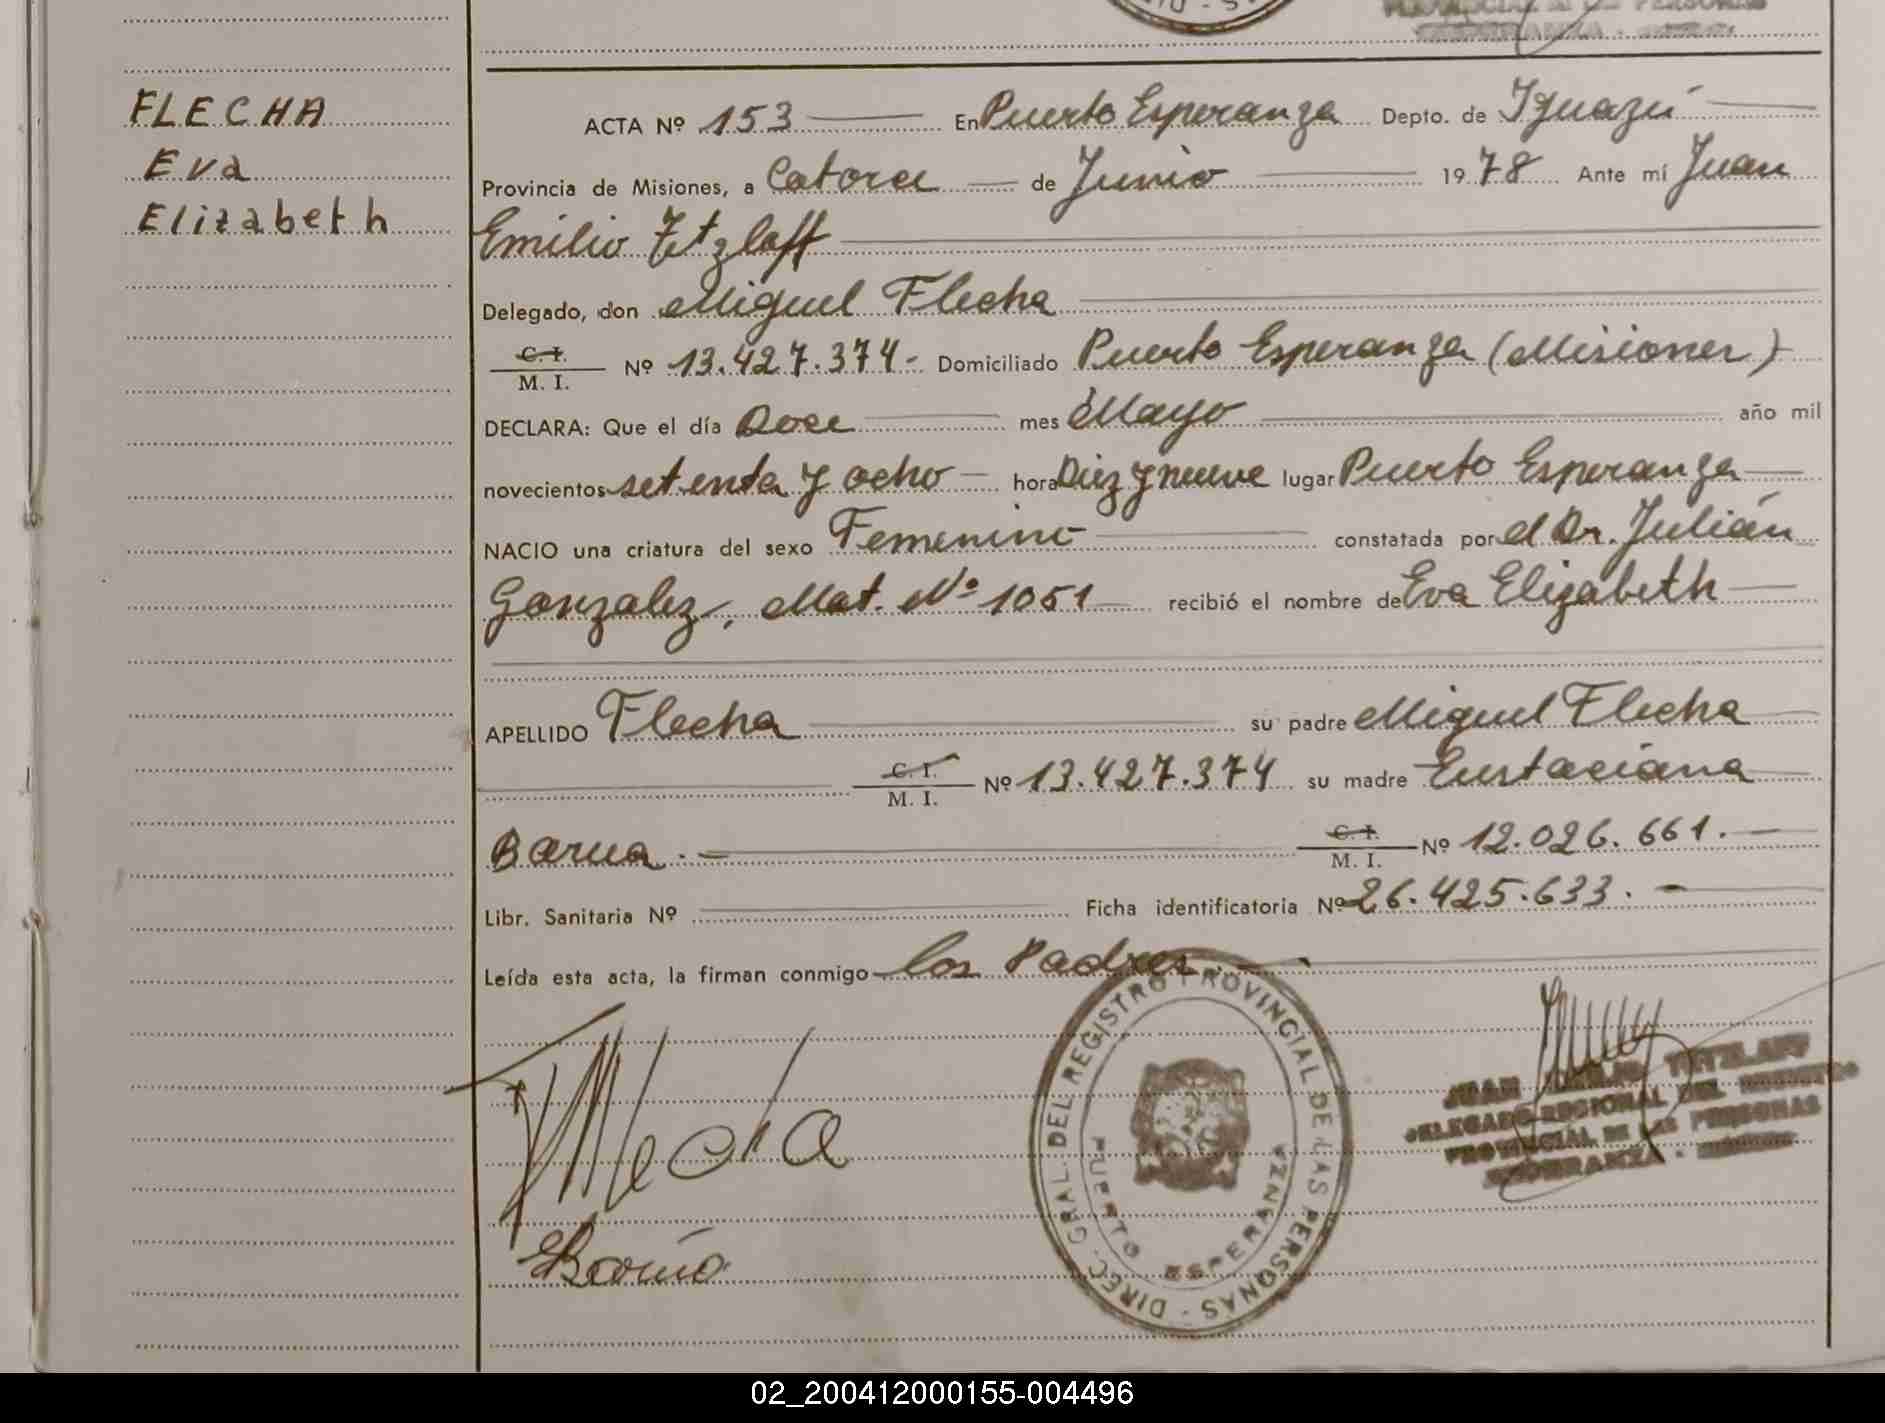 PROVINCIAL DE LAS PERSONAS
ESPERANZA
FLECHA
Eva
Elizabeth
ACTA Nº 153 En Puerto Esperanza Depto. de Iguazú
Provincia de Misiones, a Catorce de Junio 1978 Ante mí Juan
Emilio Tetzlaff
Delegado, don Miguel Flecha
C. I. / M. I. Nº 13.427.374- Domiciliado Puerto Esperanza (Misiones)
DECLARA: Que el día Doce mes Mayo año mil
novecientos setenta y ocho hora Diez y nueve lugar Puerto Esperanza
NACIO una criatura del sexo Femenino constatada por el Dr. Julián
Gonzalez, Mat. Nº 1051 recibió el nombre de Eva Elizabeth
APELLIDO Flecha su padre Miguel Flecha
C. I. / M. I. Nº 13.427.374 su madre Eustaciana
Barua.- C. I. / M. I. Nº 12.026.661.
Libr. Sanitaria Nº Ficha identificatoria Nº 26.425.633.-
Leída esta acta, la firman conmigo los Padres.-
Flecha
DIREC. GRAL. DEL REGISTRO PROVINCIAL DE LAS PERSONAS
PUERTO ESPERANZA
JUAN EMILIO TETZLAFF
DELEGADO REGIONAL DEL REGISTRO
PROVINCIAL DE LAS PERSONAS
ESPERANZA - MISIONES
02_200412000155-004496